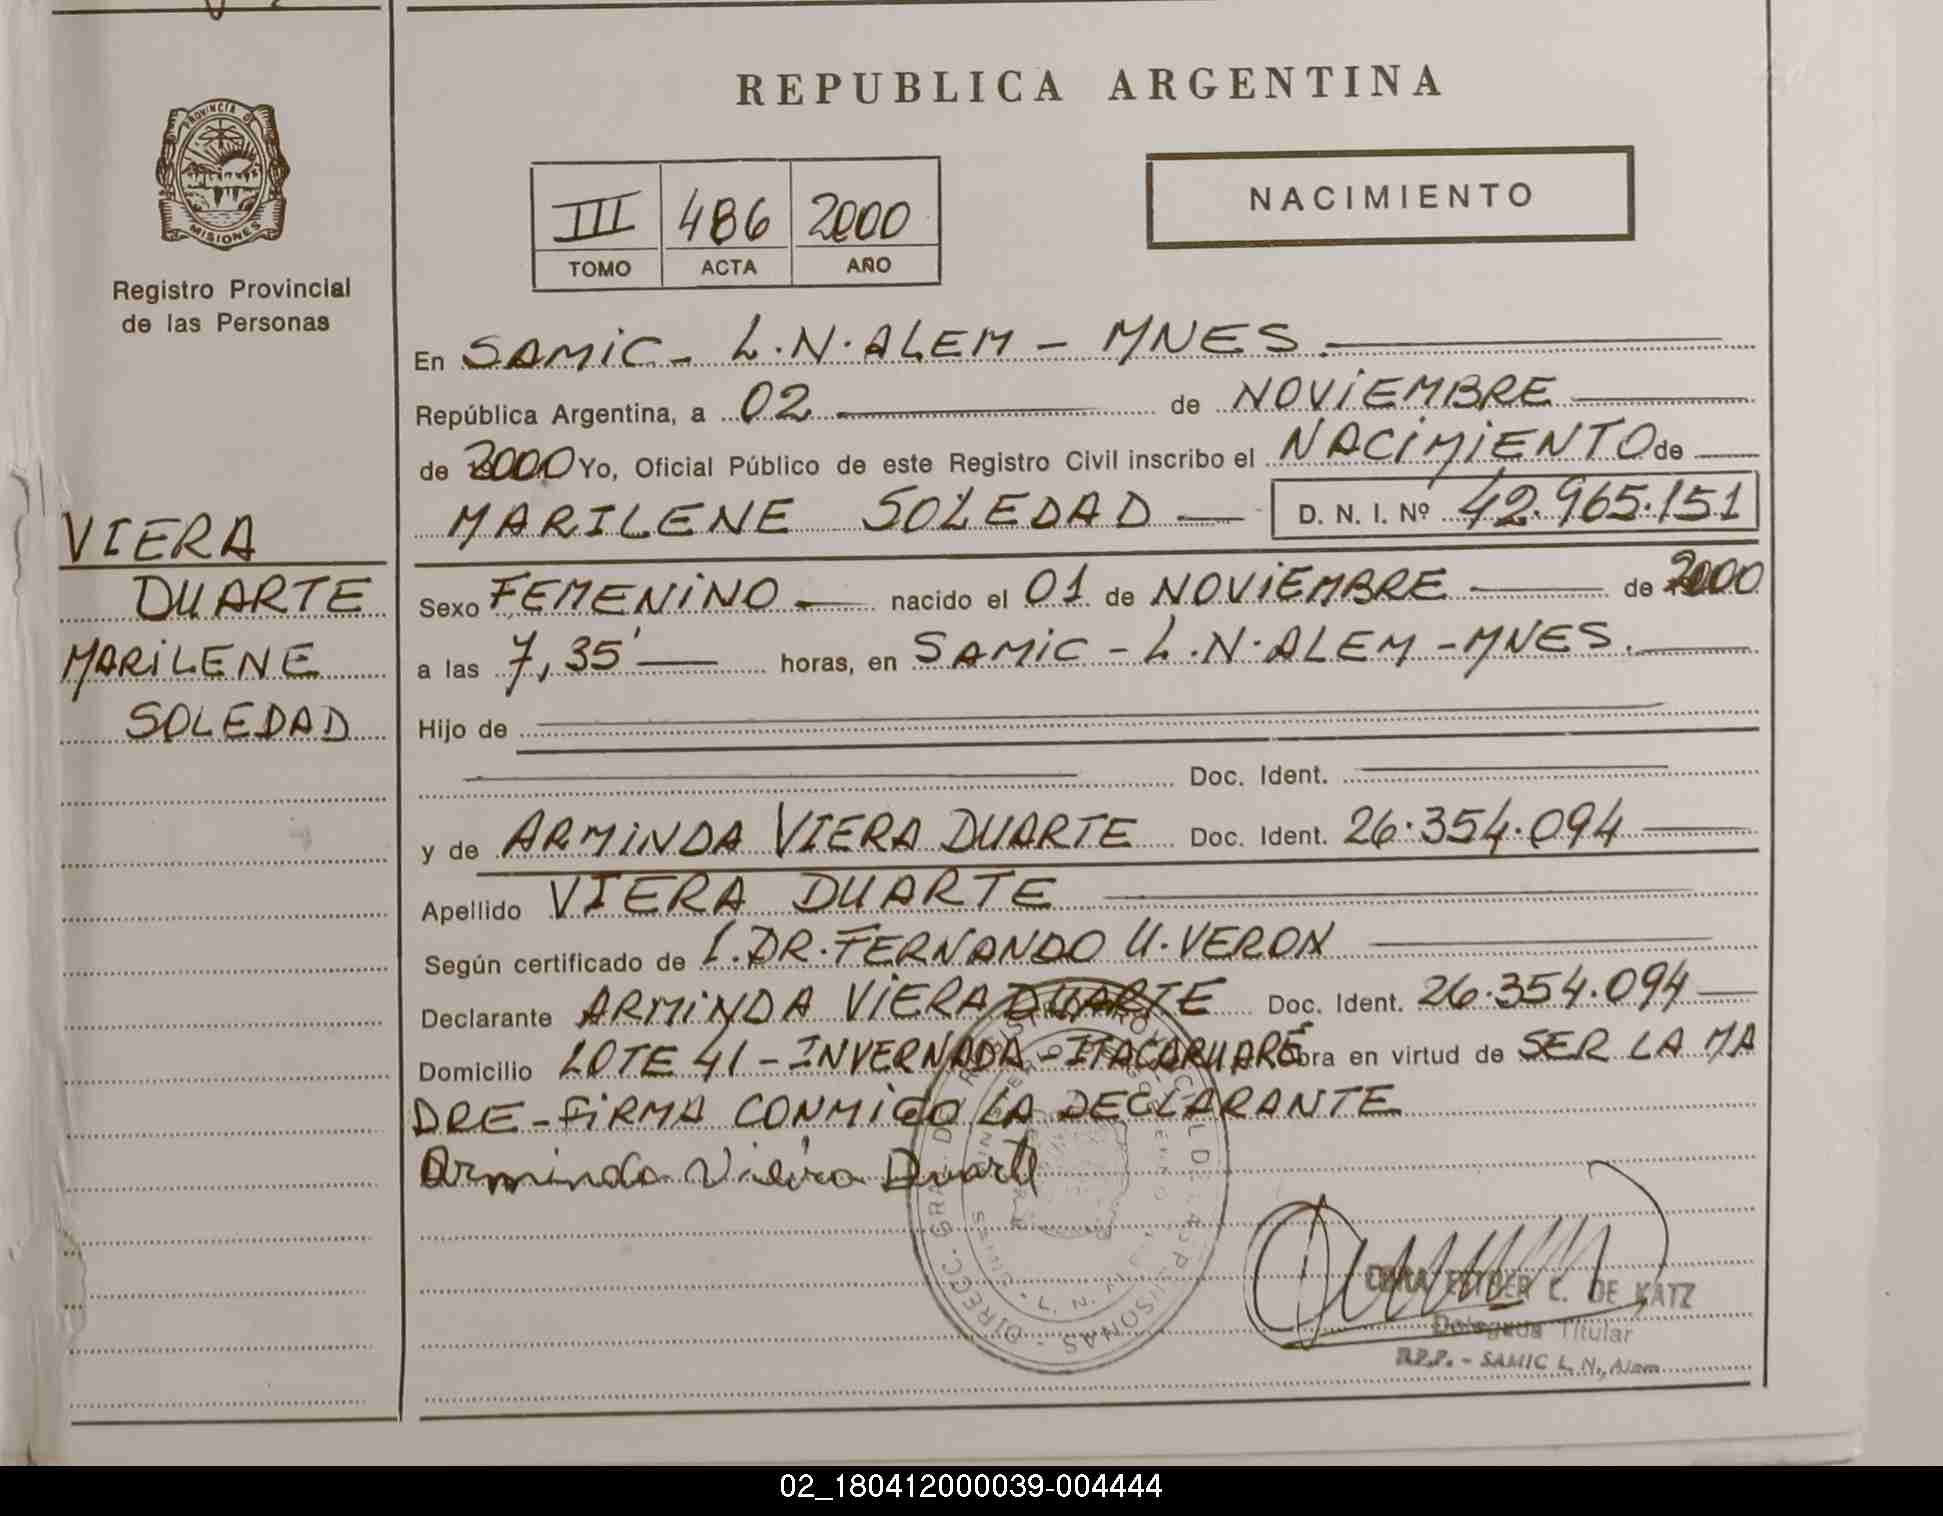 REPUBLICA ARGENTINA
PROVINCIA DE
MISIONES
Registro Provincial
de las Personas
NACIMIENTO
III 486 2000
TOMO ACTA AÑO
En SAMIC - L.N. ALEM - MNES.
República Argentina, a 02 de NOVIEMBRE
de 2000 Yo, Oficial Público de este Registro Civil inscribo el NACIMIENTO de
MARILENE SOLEDAD D. N. I. Nº 42.965.151
VIERA
DUARTE
MARILENE
SOLEDAD
Sexo FEMENINO nacido el 01 de NOVIEMBRE de 2000
a las 7,35' horas, en SAMIC - L.N. ALEM - MNES.
Hijo de
Doc. Ident.
y de ARMINDA VIERA DUARTE Doc. Ident. 26.354.094
Apellido VIERA DUARTE
Según certificado de L. DR. FERNANDO U. VERON
Declarante ARMINDA VIERA DUARTE Doc. Ident. 26.354.094
Domicilio LOTE 41 - INVERNADA - ITACARUARÉ obra en virtud de SER LA MA
DRE - FIRMA CONMIGO LA DECLARANTE
Arminda Vieira Duarte
ESTHER C. DE KATZ
Delegada Titular
R.P.P. - SAMIC L. N. Alem
02_180412000039-004444